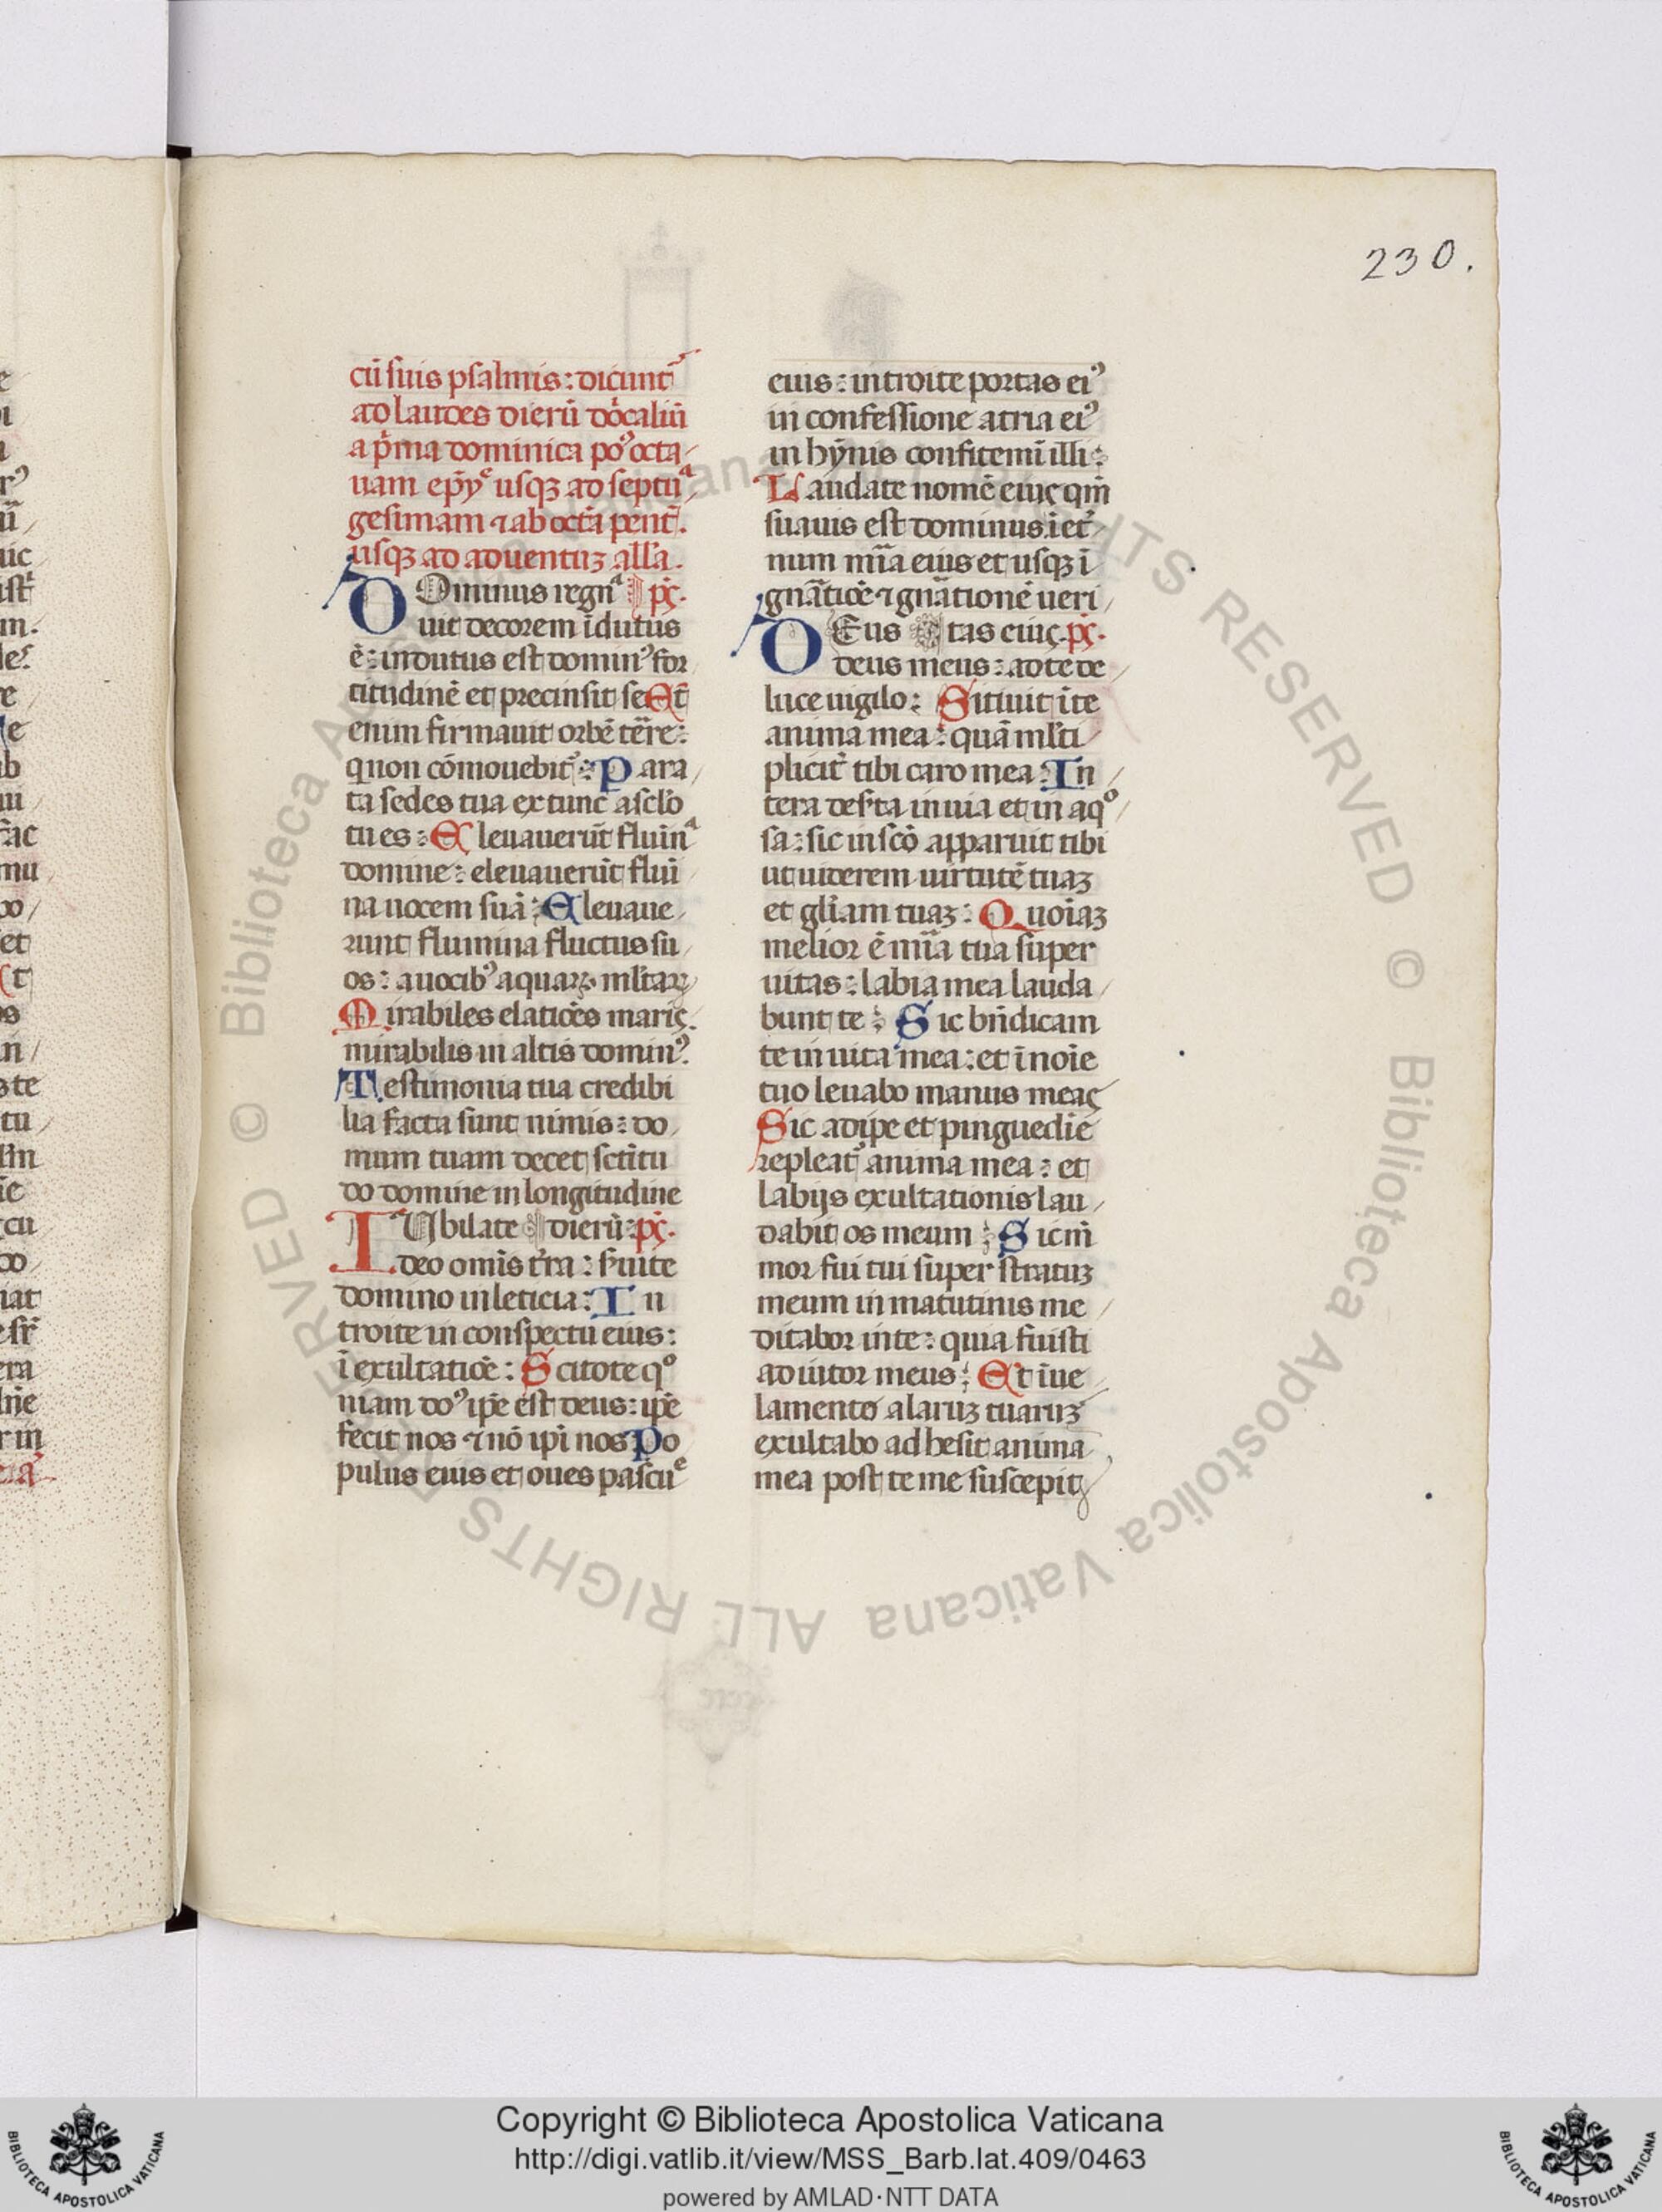 230.
cū suis psalmis: dicunt᷑
ad laudes dierū dn̄icaliū
a pͥma dominica po' octa
uam epy̅e usqȝ ad septuͣ
gesimam ⁊ ab octā pent̄.
usqȝ ad aduentuȝ all'a.
DOminus regnͣ p̄s.
uit decorem īdutus
ē: indutus est domin' for
titudinē et precinsit se Et
enim firmauit orbē tēre:
q non cōmouebit᷑: Para
ta sedes tua ex tunc a sc̄lo
tu es: Eleuauerūt fluīnͣ
domine: eleuauerūt flui
na uocem suā: Eleuaue
runt flumina fluctus su
os: a uocib' aquaꝝ mltaꝝ
Mirabiles elatiōes maris.
mirabilis in altis domin'.
Testimonia tua credibi
lia facta sunt nimis: do
mum tuam decet sctitu
do domine in longitudine
IUbilate dierū: p̄s.
deo omīs tr̄ra: s̄uite
domino in leticia: In
troite in conspectu eius:
ī exultatiōe: Scitote qͦ
niam do' ip̄e est deus: ip̄e
fecit nos ⁊ nō ip̄i nos: Po
pulus eius et oues pascuͤ
eius: introite portas ei'
in confessione atria ei'
in hȳnis confitemī illi:
Laudate nomē eius qm̄
suauis est dominus: ī et᷑
num mīa eius et usqȝ ī
gnātiōe ⁊ gnātionē ueri
DEus tas eius. p̄s.
deus meus: ad te de
luce uigilo: Sitiuit ī te
anima mea: quā ml̄ti
plicit᷑ tibi caro mea: In
tera des̄ta inuia et in aqͦ
sa: sic in sc̄o apparuit tibi
ut uiderem uirtutē tuaȝ
et gl̄iam tuaȝ: Quoīaȝ
melior ē mīa tua super
uitas: labia mea lauda
bunt te: Sic bn̄dicam
te in uita mea: et ī noīe
tuo leuabo manus meas
Sic adipe et pinguedīe
repleat᷑ anima mea: et
labijs exultationis lau
dabit os meum: Sic m̄
mor fui tui super stratuȝ
meum in matutinis me
ditabor in te: quia fuisti
adiutor meus: Et ī ue
lamento alaruȝ tuaruȝ
exultabo adhesit anima
mea post te me suscepit
Copyright © Biblioteca Apostolica Vaticana
http://digi.vatlib.it/view/MSS_Barb.lat.409/0463
powered by AMLAD·NTT DATA
© Biblioteca Apostolica Vaticana ALL RIGHTS RESERVED © Biblioteca Apostolica Vaticana ALL RIGHTS RESERVED
BIBLIOTECA APOSTOLICA VATICANA
BIBLIOTECA APOSTOLICA VATICANA